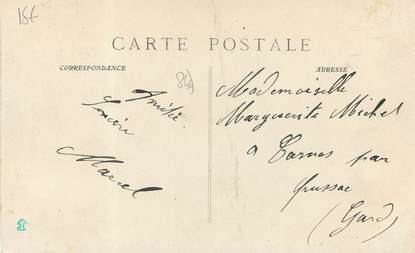 15€
CARTE POSTALE
CORRESPONDANCE
ADRESSE
Amitié
Sincère
Marcel
Mademoiselle
Marguerite Michel
a Tarnes par
Gussac
(Gard)